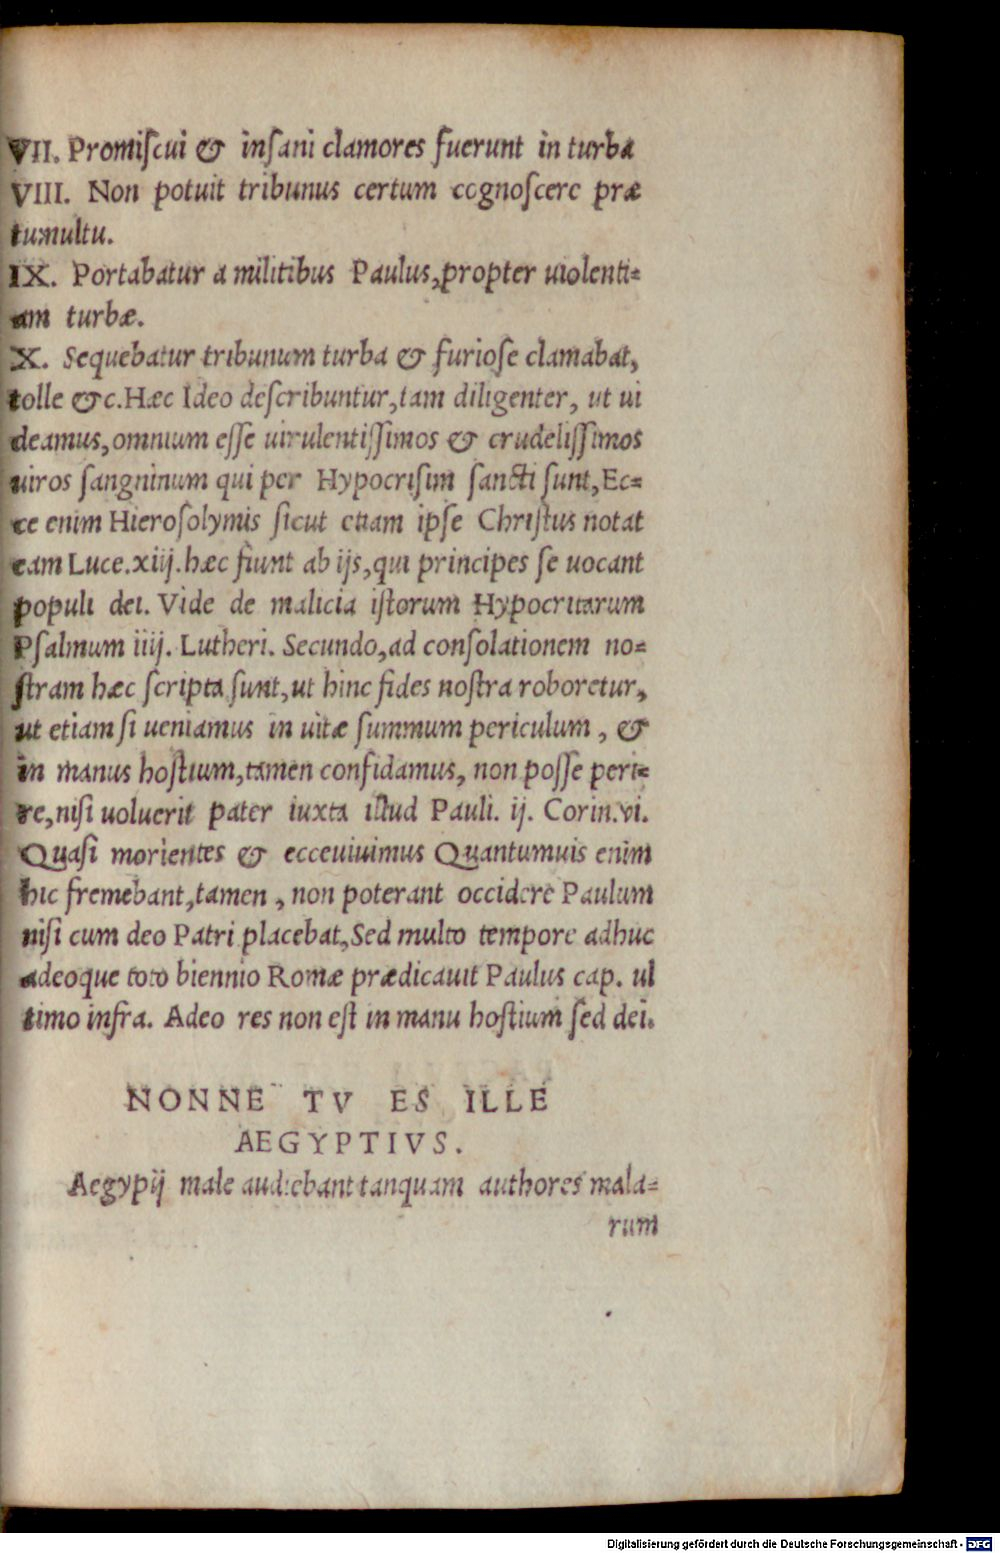 VII. Promiſcui & inſani clamores fuerunt in turba
VIII. Non potuit tribunus certum cognoſcere præ
tumultu.
IX. Portabatur a militibus Paulus,propter uiolenti=
am turbæ.
X. Sequebatur tribunum turba & furioſe clamabat,
tolle &c.Hæc Ideo deſcribuntur,tam diligenter, ut ui
deamus,omnium eſſe uirulentiſſimos & crudeliſſimos
uiros ſangninum qui per Hypocriſim ſancti ſunt,Ec=
ce enim Hieroſolymis ſicut etiam ipſe Chriſtus notat
eam Luce.xiij.hæc fiunt ab ijs,qui principes ſe uocant
populi dei. Vide de malicia iſtorum Hypocritarum
Pſalmum iiij. Lutheri. Secundo,ad conſolationem no=
ſtram hæc ſcripta ſunt,ut hinc fides noſtra roboretur,
ut etiam ſi ueniamus in uitæ ſummum periculum , &
in manus hoſtium,tamen confidamus, non poſſe peri=
re,niſi uoluerit pater iuxta illud Pauli. ij. Corin.vi.
Quaſi morientes & ecceuiuimus Quantumuis enim
hic fremebant,tamen , non poterant occidere Paulum
niſi cum deo Patri placebat,Sed multo tempore adhuc
adeoque toto biennio Romæ prædicauit Paulus cap. ul
timo infra. Adeo res non eſt in manu hoſtium ſed dei.
NONNE TV ES ILLE
AEGYPTIVS.
Aegypij male audiebant tanquam authores mala=
rum
Digitalisierung gefördert durch die Deutsche Forschungsgemeinschaft - DFG